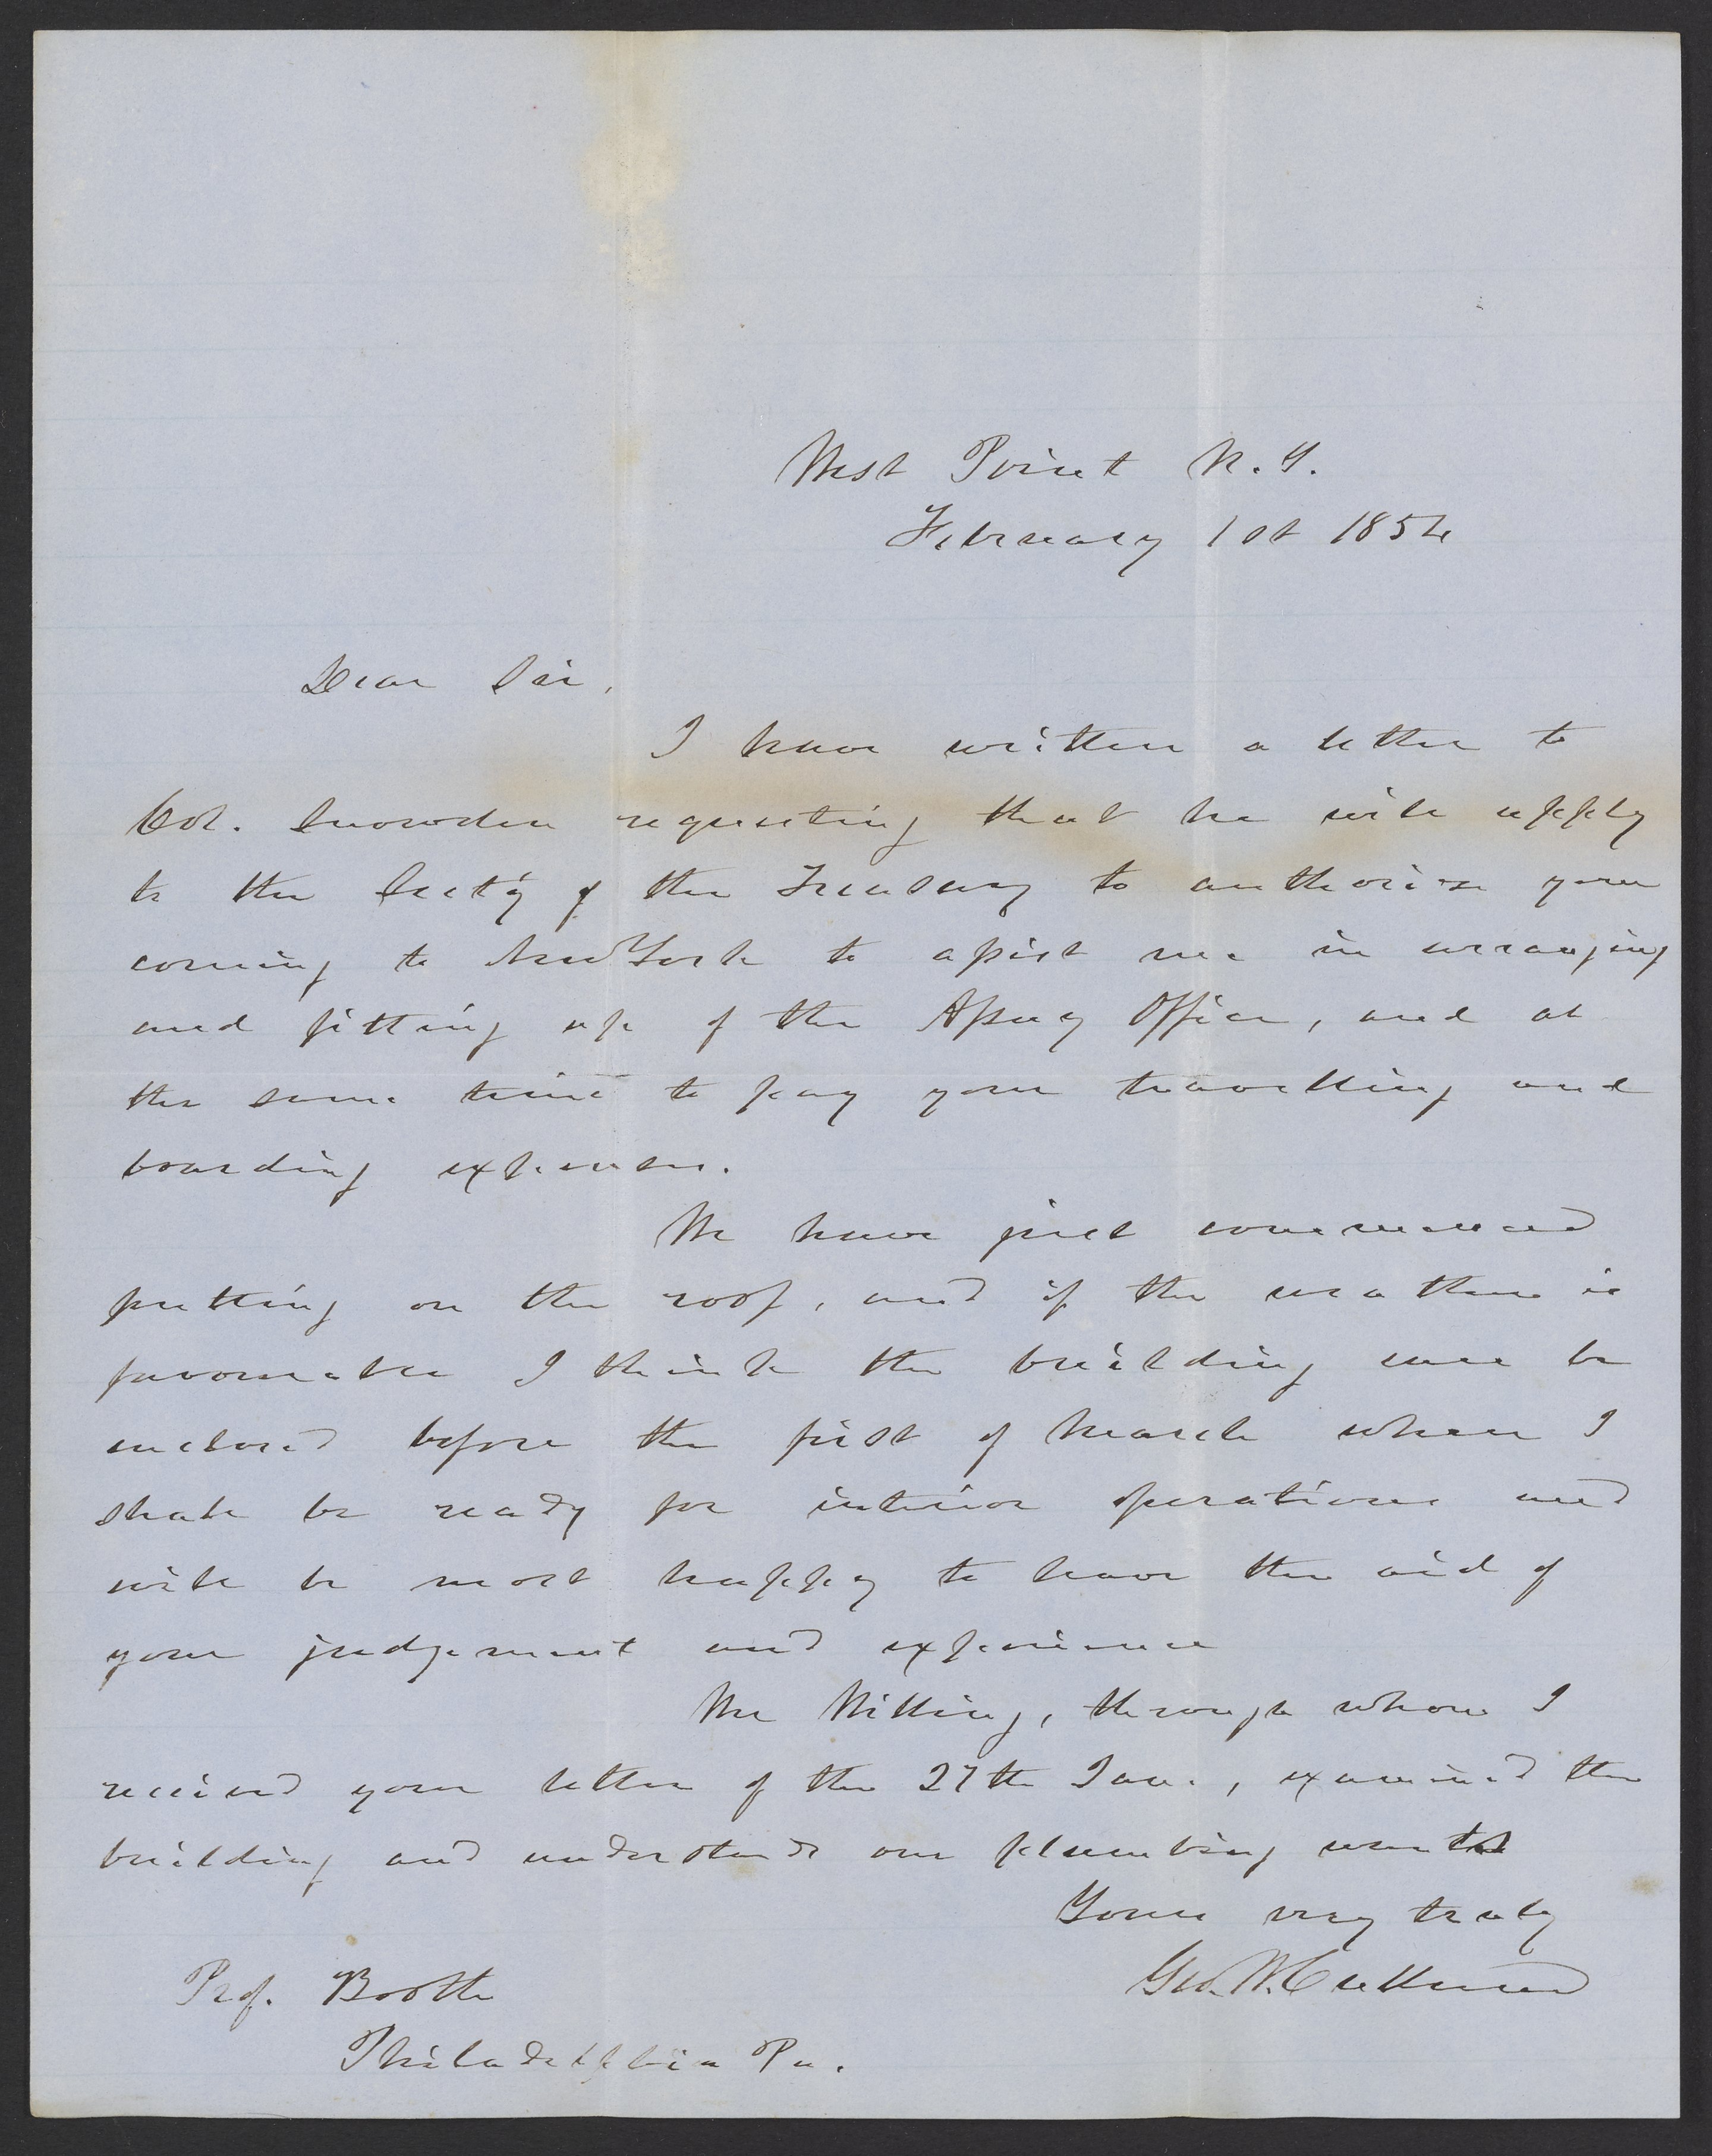 West Point N.Y.
February 1st 1854
Dear Sir,
I have written a letter to
Col. Snowden requesting that he will apply
to the Sect'y of the Treasury to authorize your
coming to New York to assist me in arranging
and fitting up of the Assay Office, and at
the same time to pay your travelling and
boarding expenses.
We have just commenced
putting on the roof, and if the weather is
favorable I think the building will be
enclosed before the first of March when I
shall be ready for interior operations and
will be most happy to have the aid of
your judgement and experience
Mr Witting, through whom I
received your letter of the 27th Jan., examined the
building and understands our plumbing wants
Yours very truly
Geo. W. Cullum
Prof. Booth
Philadelphia Pa.